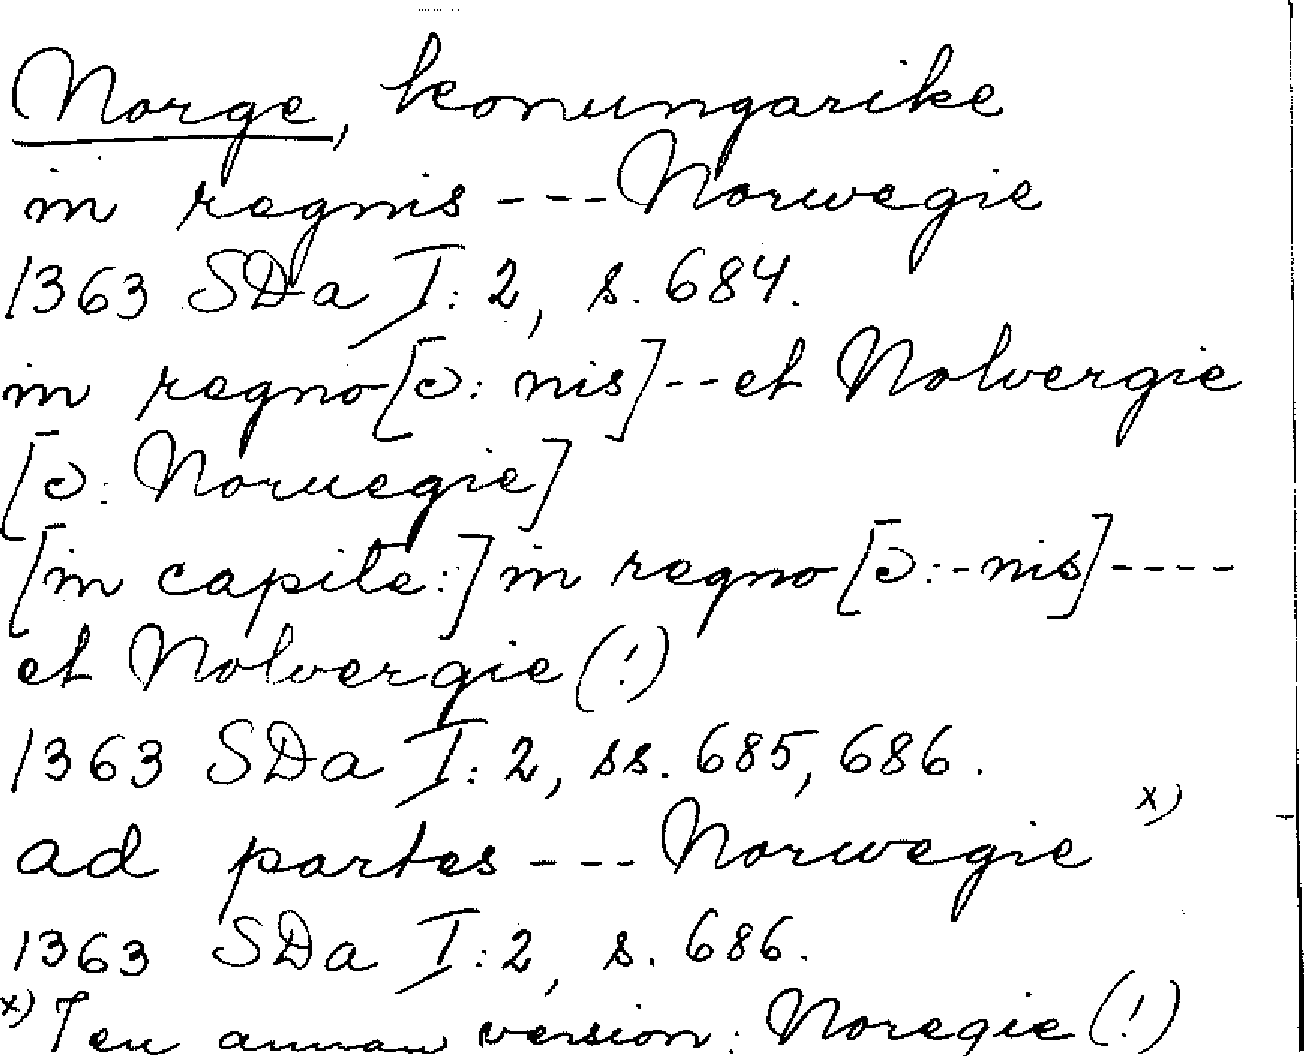 Norge, konungarike
in regnis --- Norwegie
1363 SDa I:2, s. 684.
in regno [ɔ: nis] -- et Nolvergie
[ɔ: Noruegie]
[in capite:] in regno [ɔ: -nis] ----
et Nolvergie (!)
1363 SDa I:2, ss. 685, 686.
ad partes --- Norwegie x)
1363 SDa I:2, s. 686.
x) I en annan version: Noregie (!)